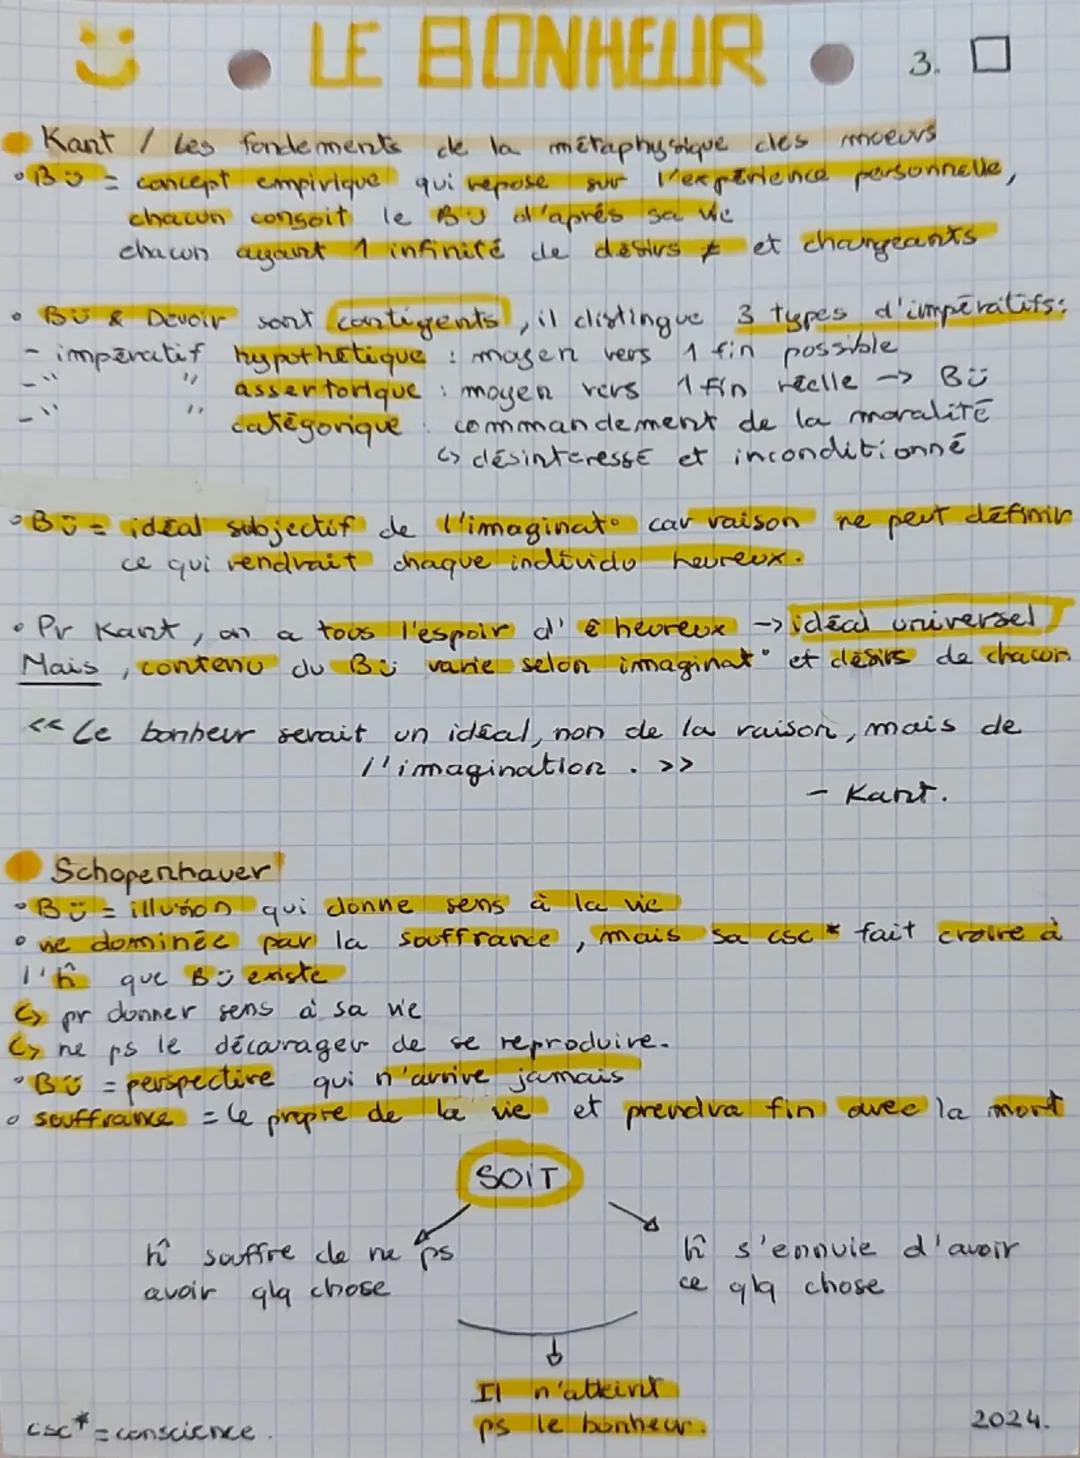 LE BONHEUR 3.
Kant / Les fondements de la métaphysique des moeurs
• B = concept empirique qui repose sur l'expérience personnelle,
chacun consoit le B d'après sa vie
chacun ayant 1 infinité de désirs ≠ et changeants
• B & Devoir sont contigents, il distingue 3 types d'impératifs:
- impératif hypothétique : moyen vers 1 fin possible
- " " assertorique : moyen vers 1 fin réelle → B
- " " catégorique : commandement de la moralité
↳ désinteressé et inconditionné
• B = idéal subjectif de l'imaginat° car raison ne peut définir
ce qui rendrait chaque individu heureux.
• Pr Kant, on a tous l'espoir d' ê heureux → idéal universel
Mais, contenu du B varie selon imaginat° et désirs de chacun
<< Le bonheur serait un idéal, non de la raison, mais de
l'imagination. >>
- Kant.
Schopenhauer
• B = illusion qui donne sens à la vie
• vie dominée par la souffrance, mais sa csc * fait croire à
l'ĥ que B existe
↳ pr donner sens à sa vie
↳ ne ps le décourager de se reproduire.
• B = perspective qui n'arrive jamais
• souffrance = le propre de la vie et prendra fin avec la mort
SOIT
ĥ souffre de ne ps
avoir qlq chose
ĥ s'ennuie d'avoir
ce qlq chose
Il n'atteint
ps le bonheur.
csc* = conscience.
2024.